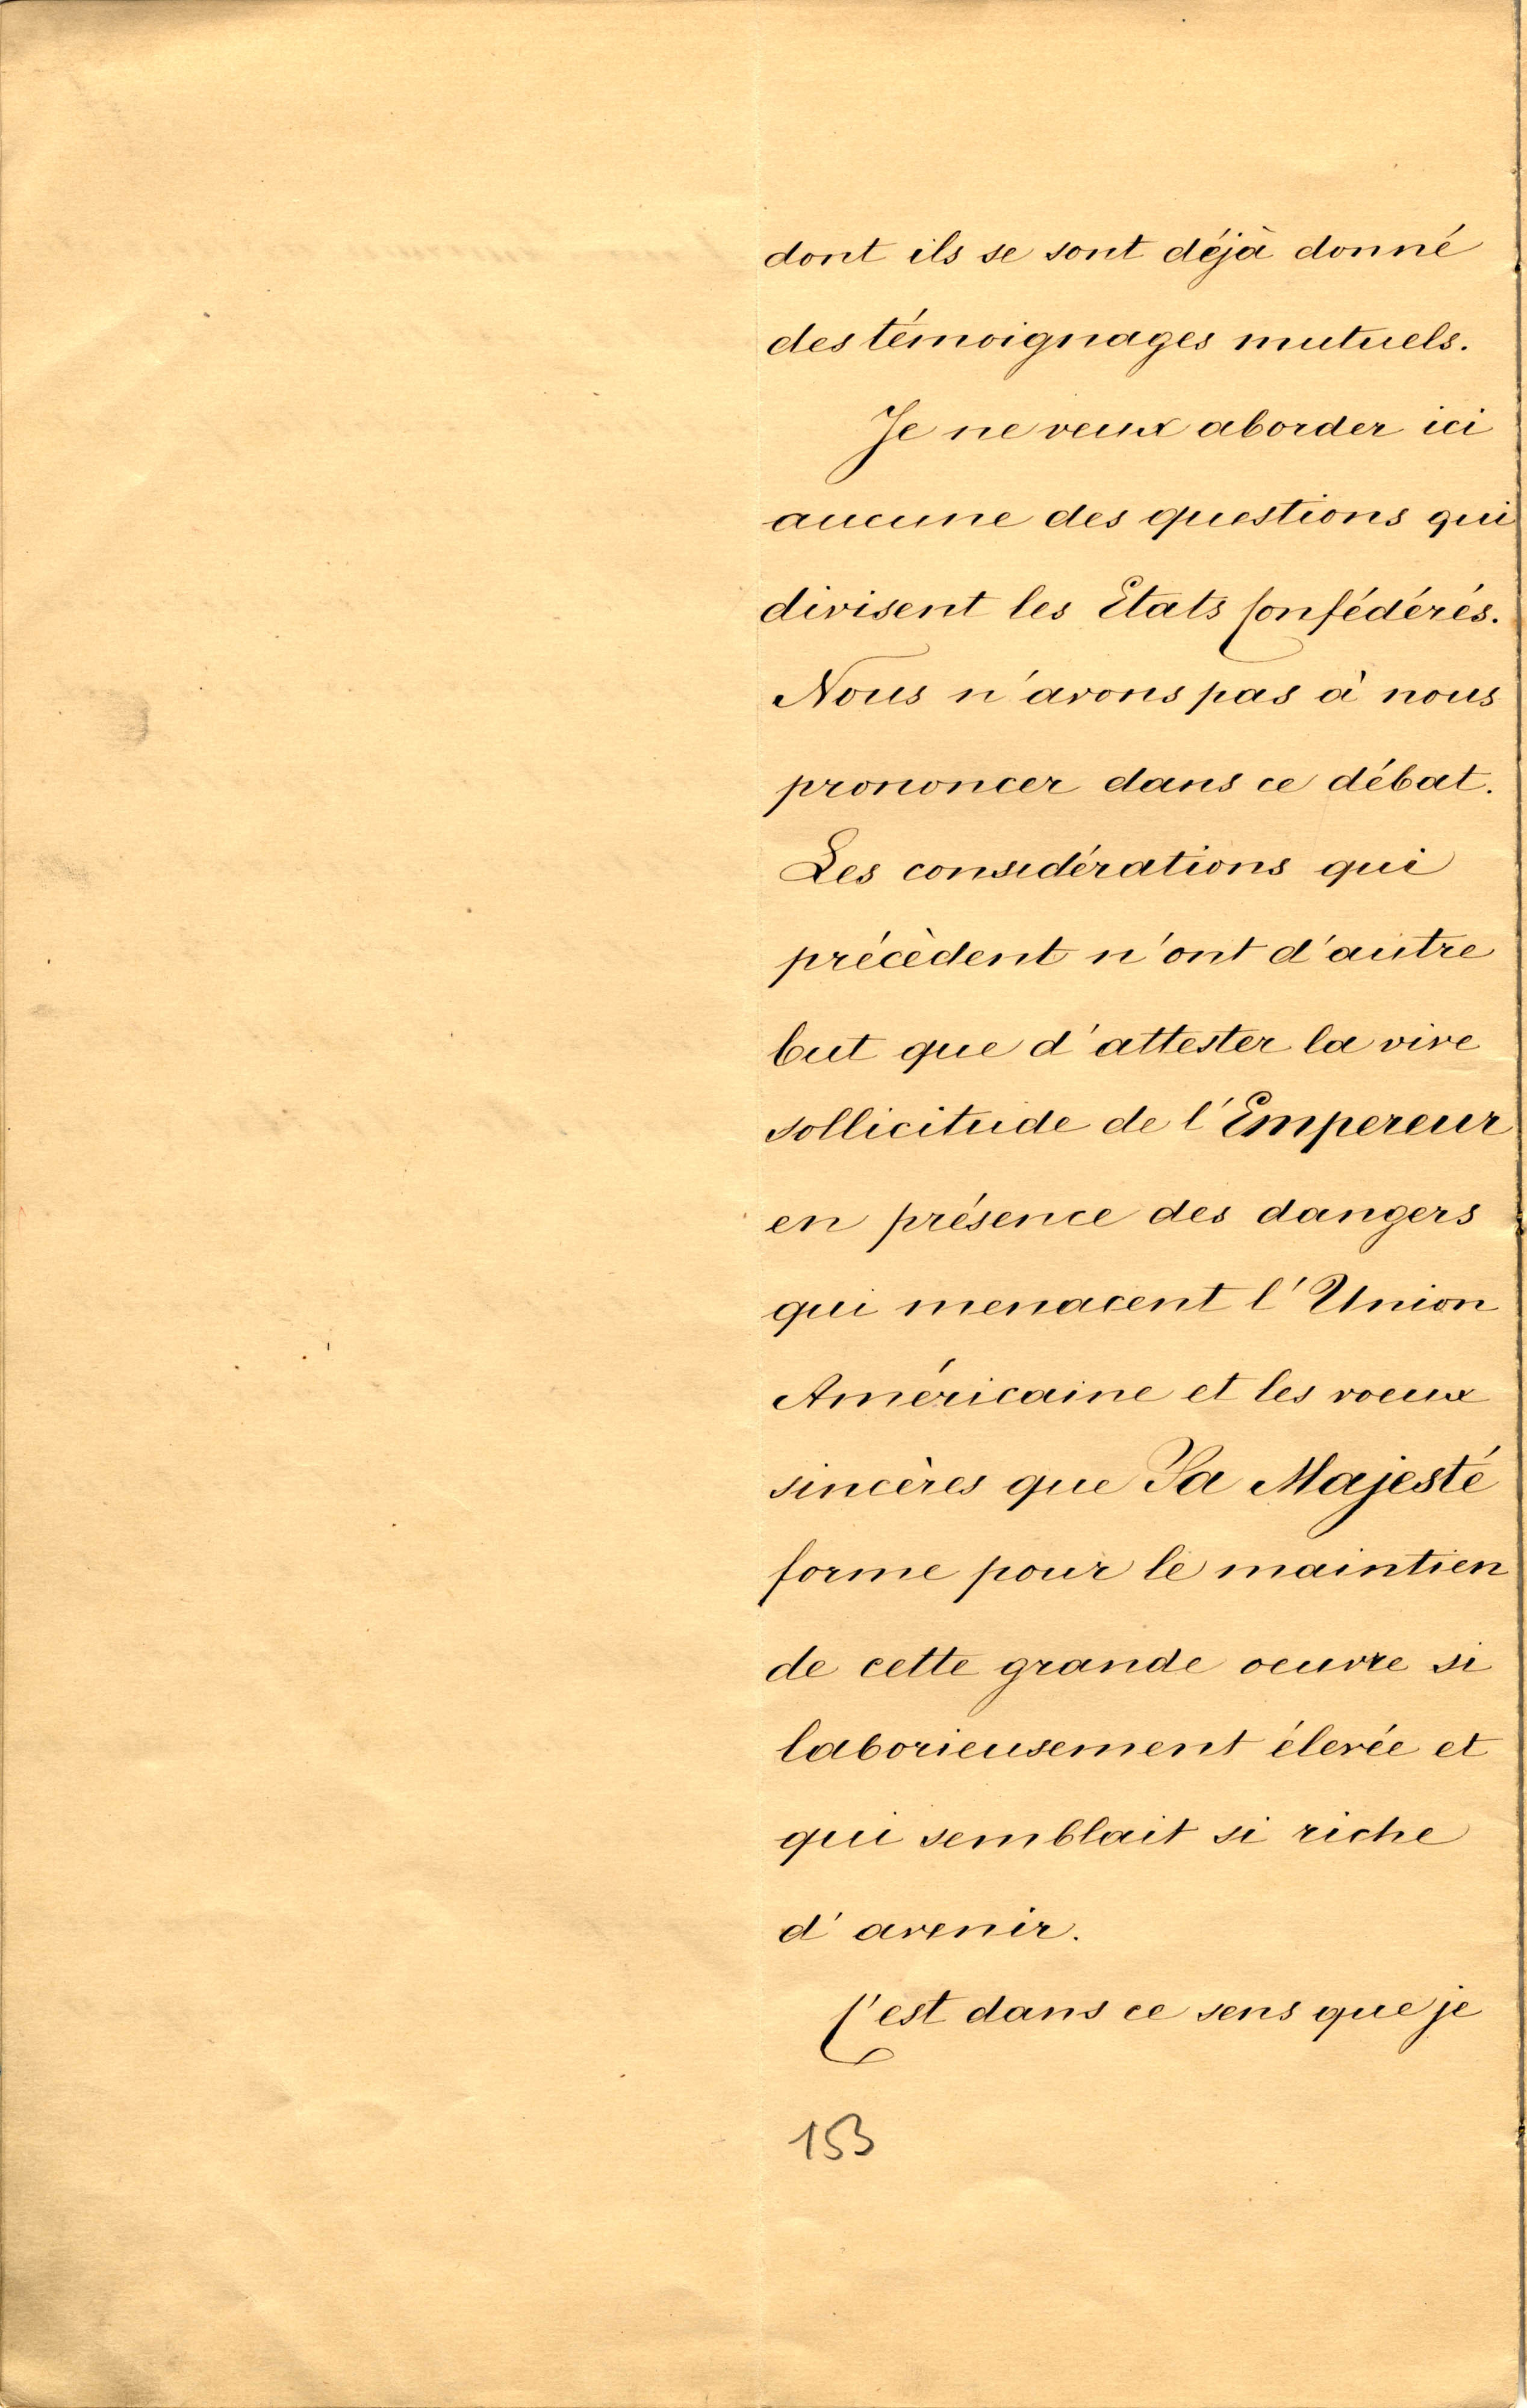 dont ils se sont déjà donné
des témoignages mutuels.
Je ne veux aborder ici
aucune des questions qui
divisent les Etats Confédérés.
Nous n'avons pas à nous
prononcer dans ce débat.
Les considérations qui
précèdent n'ont d'autre
but que d'attester la vive
sollicitude de l'Empereur
en présence des dangers
qui menacent l'Union
Américaine et les voeux
sincères que Sa Majesté
forme pour le maintien
de cette grande oeuvre si
laborieusement élevée et
qui semblait si riche
d'avenir.
C'est dans ce sens que je
153